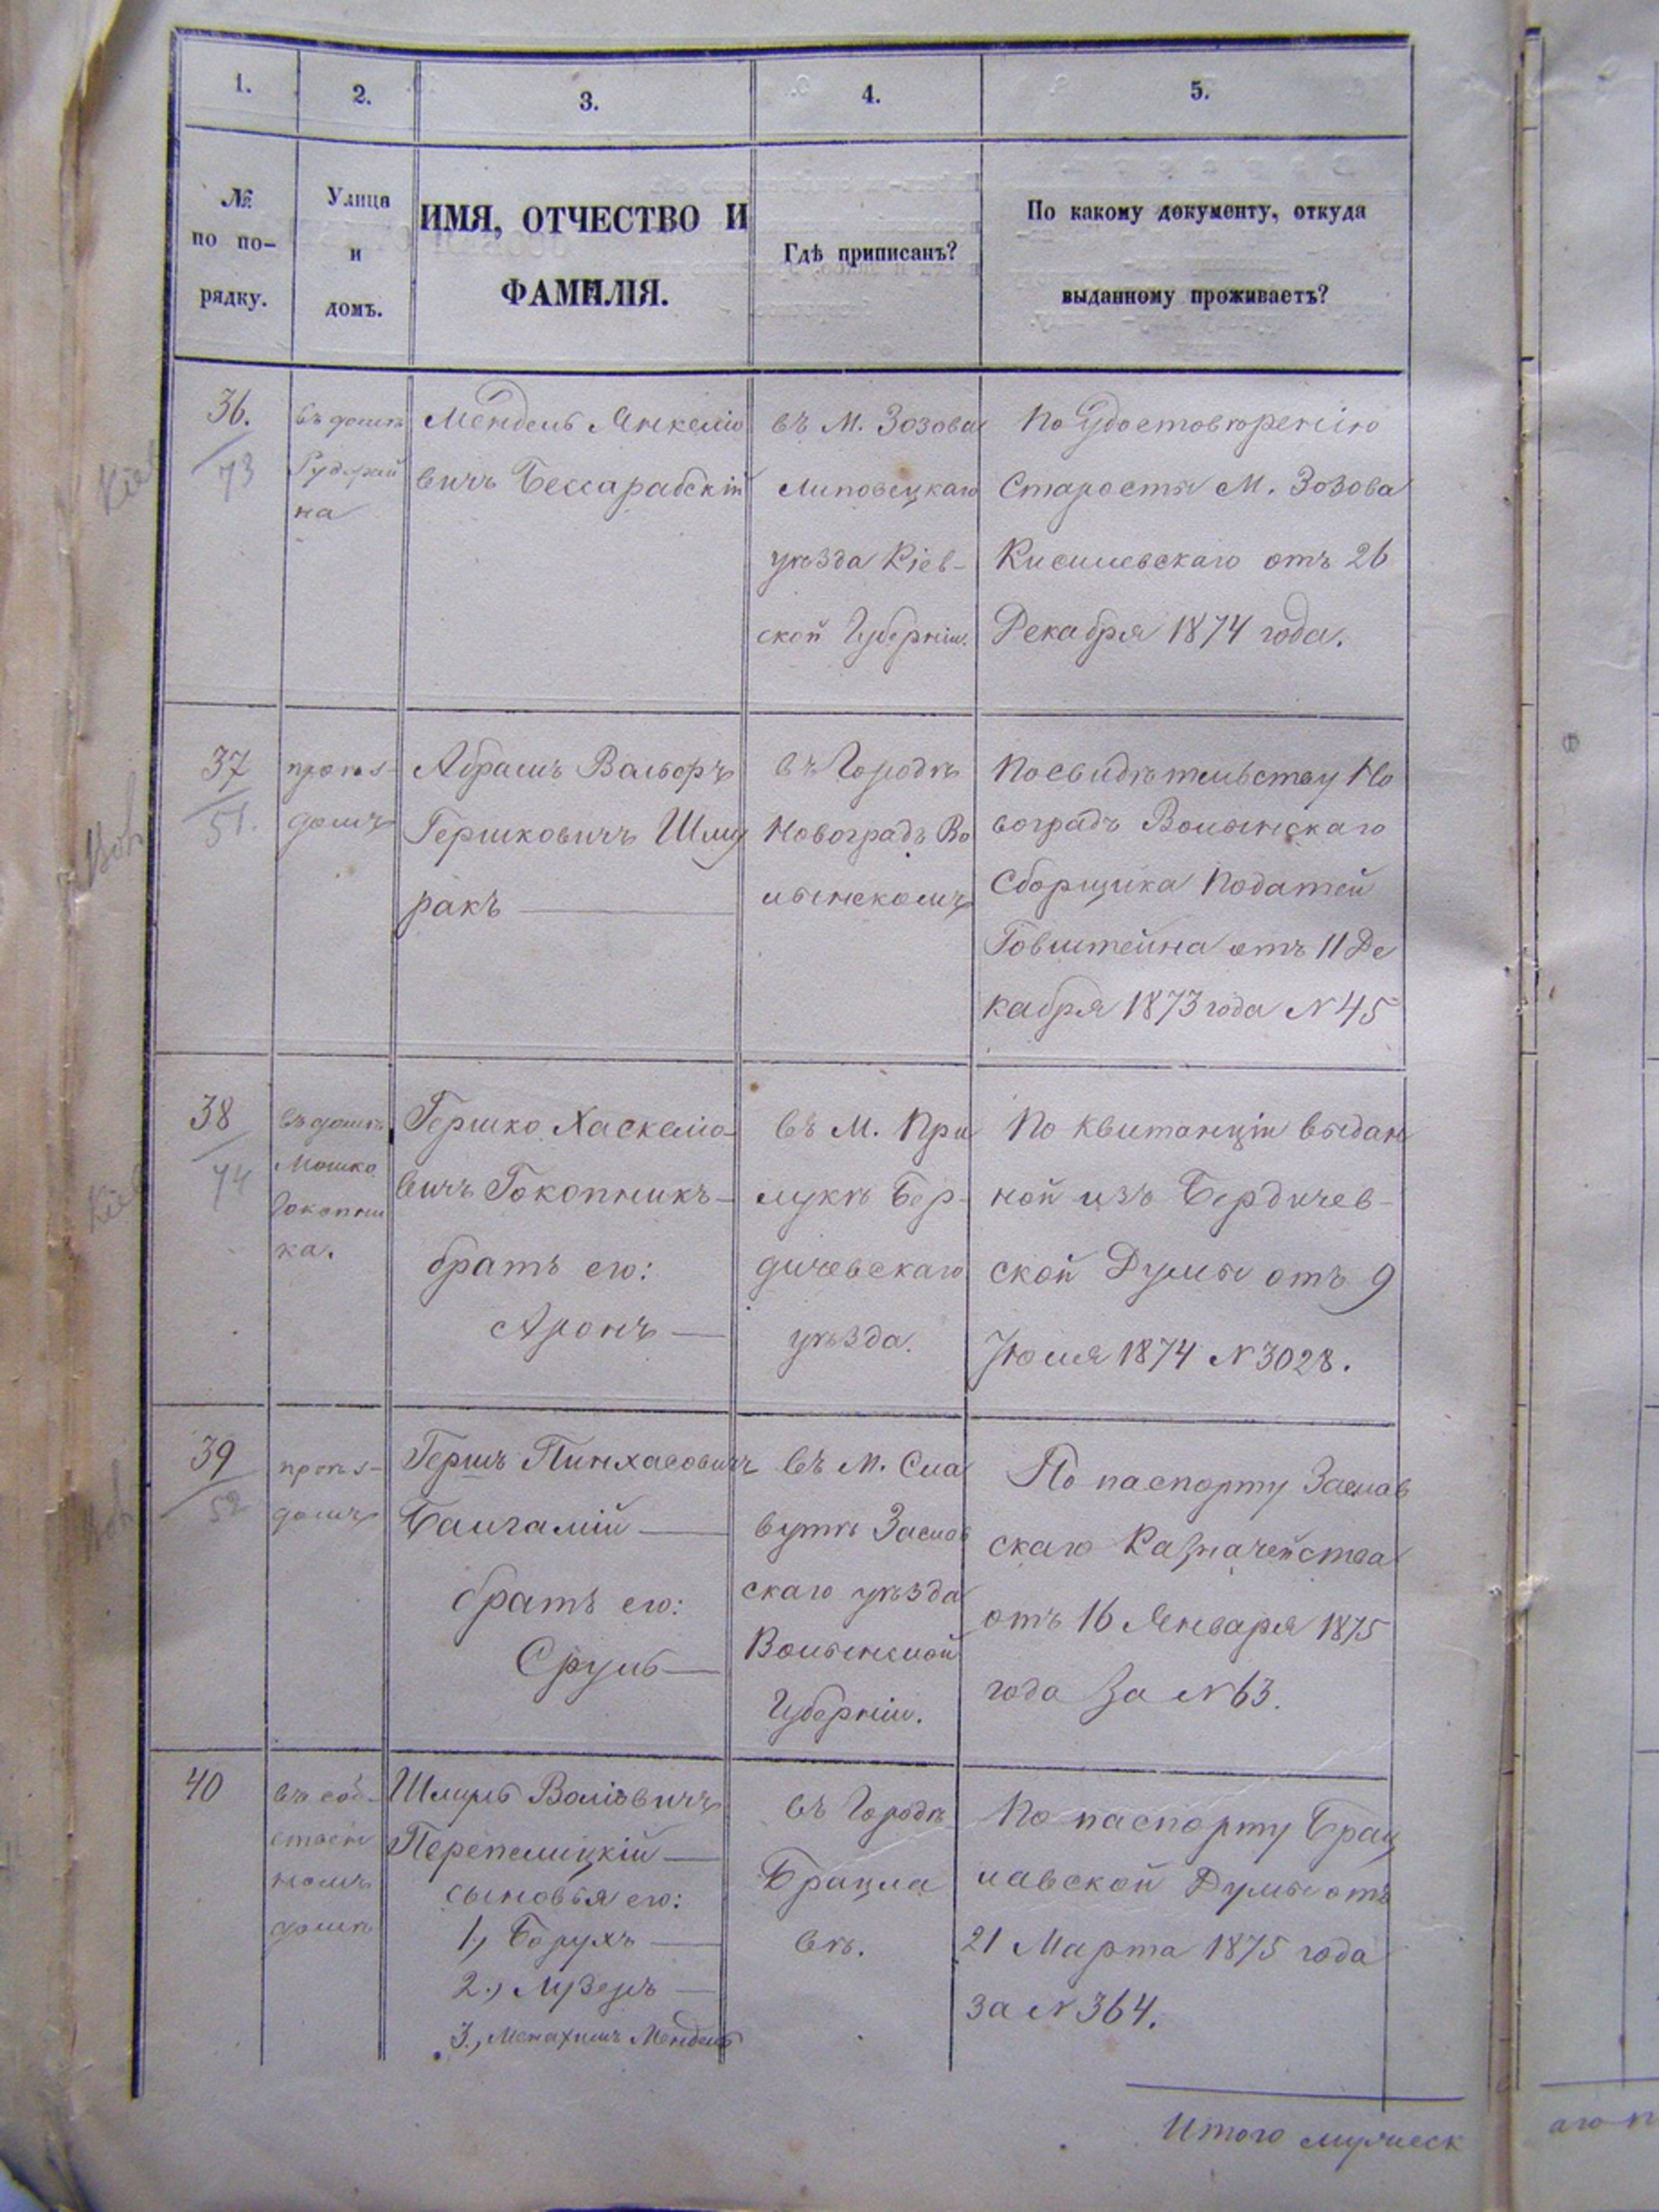 1.
2.
3.
4.
5.
№
по по-
рядку.
Улица
и
домъ.
ИМЯ, ОТЧЕСТВО И
ФАМИЛІЯ.
Гдѣ приписанъ?
По какому документу, откуда
выданному проживаетъ?
36.
73
въ домѣ
на
Мендель Янкеліо
вичъ Бессарабскій
въ М. Зозова
Липовецкаго
уѣзда Кіев-
ской Губерніи.
По Удостовѣренію
Старосты М. Зозова
Кисилевскаго отъ 26
Декабря 1874 года.
37
51.
домъ
Абрамъ Вольфъ
Гершковичъ Шму
ракъ
въ Городѣ
Новоградъ Во
лынскомъ
По свидѣтельству Но
воградъ Волынскаго
Сборщика Податей
Говштейна отъ 11 Де
кабря 1873 года N 45
38
74
въ домѣ
Мошка
Гокопни
ка.
Гершко Хаскеліо-
вичъ Гокопникъ
братъ его:
Аронъ
въ М. При
лукѣ Бер-
дичевскаго
уѣзда.
По квитанціи выдан
ной изъ Бердичев-
ской Думы отъ 9
Іюля 1874 N 3028.
39
52
домъ
Гершъ Пинхасовичъ
братъ его:
Сруль
въ М. Сла
вутѣ Заслав
скаго уѣзда
Волынской
Губерніи.
По паспорту Заслав
скаго Казначейства
отъ 16 Января 1875
года за N 63.
40
въ соб-
ствен
номъ
домѣ
Шмуль Воліовичъ
Перепелицкій
сыновья его:
1, Борухъ
2.,
3., Менахимъ Мендель
въ Городѣ
Брацла
вѣ.
По паспорту Брац
лавской Думы отъ
21 Марта 1875 года
за N 364.
Итого мужеск